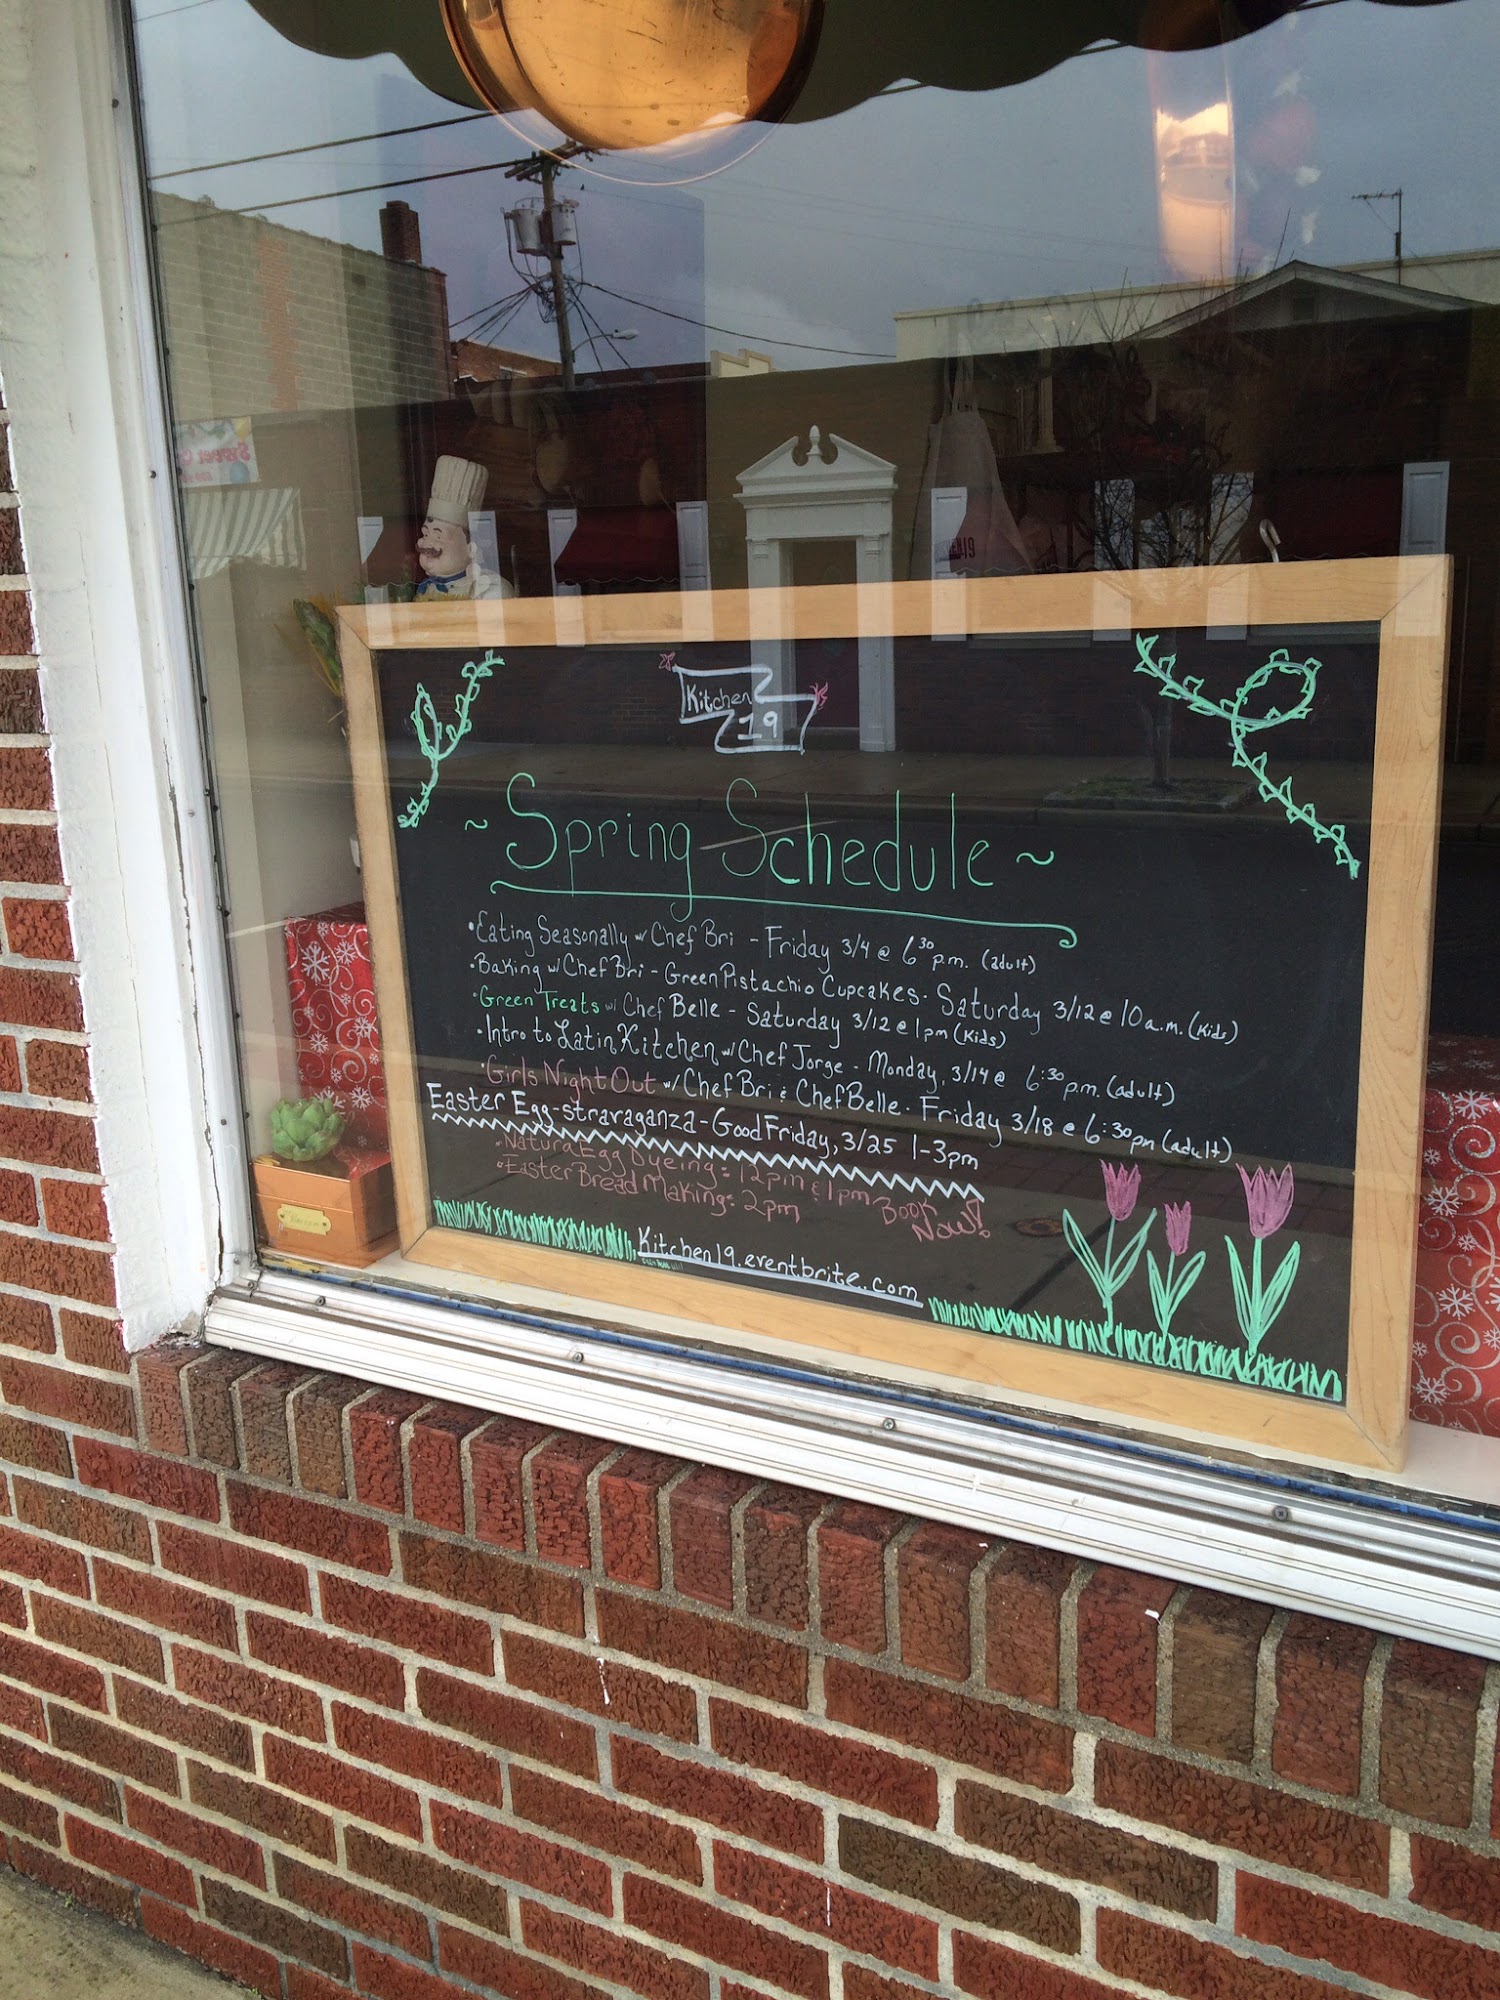 Kitchen
19
~ Spring Schedule ~
• Eating Seasonally w/ Chef Bri - Friday 3/4 @ 6³⁰ p.m. (adult)
• Baking w/ Chef Bri - Green Pistachio Cupcakes - Saturday 3/12 @ 10 a.m. (Kids)
• Green Treats w/ Chef Belle - Saturday 3/12 @ 1pm (Kids)
• Intro to Latin Kitchen w/ Chef Jorge - Monday, 3/14 @ 6:30 p.m. (adult)
• Girls Night Out w/ Chef Bri & Chef Belle - Friday 3/18 @ 6:30pm (adult)
Easter Egg-stravaganza - Good Friday, 3/25 1-3pm
• Natural Egg Dyeing: 12pm & 1pm
• Easter Bread Making: 2pm
Book
Now!
Kitchen19.eventbrite.com